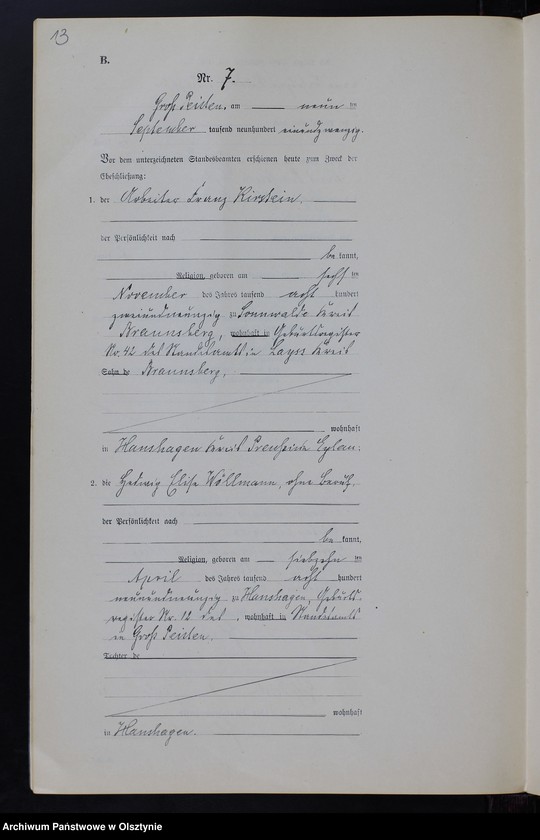 13
B.
Nr. 7.
Groß Peisten, am neun ten
September tausend neunhundert einundzwanzig.
Vor dem unterzeichneten Standesbeamten erschienen heute zum Zweck der
Eheschließung:
1. der Arbeiter Franz Kirstein.
der Persönlichkeit nach
be kannt,
Religion, geboren am sechs ten
November des Jahres tausend acht hundert
zweiundneunzig zu Sonnwalde Kreis
Braunsberg, wohnhaft in Geburtsregister
Nr. 42 des Standesamts in Layss Kreis
Sohn de Braunsberg,
wohnhaft
in Hanshagen Kreis Preussisch Eylau.
2. die Hedwig Elise Wöllmann, ohne Beruf,
der Persönlichkeit nach
be kannt,
Religion, geboren am siebzehn ten
April des Jahres tausend acht hundert
neunundneunzig zu Hanshagen, Geburts-
register Nr. 12 des, wohnhaft in Standesamts
in Groß Peisten.
Tochter de
wohnhaft
in Hanshagen.
Archiwum Państwowe w Olsztynie